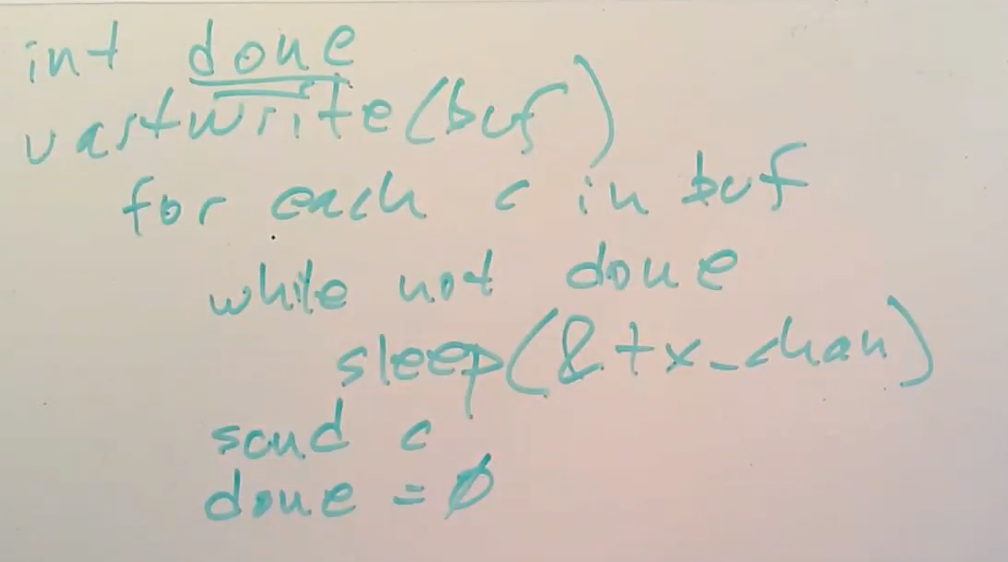 int done
uartwrite(buf)
for each c in buf
while not done
sleep(&tx_chan)
send c
done = 0